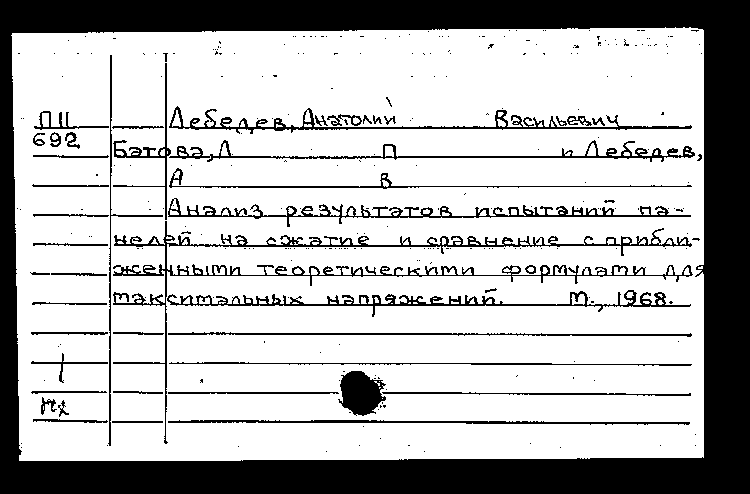 П11 Лебедев, Анатолий Васильевич
692
Батова, Л П и Лебедев,
А В
Анализ результатов испытаний па-
нелей на сжатие и сравнение с прибли-
женными теоретическими формулами для
максимальных напряжений. М., 1968.